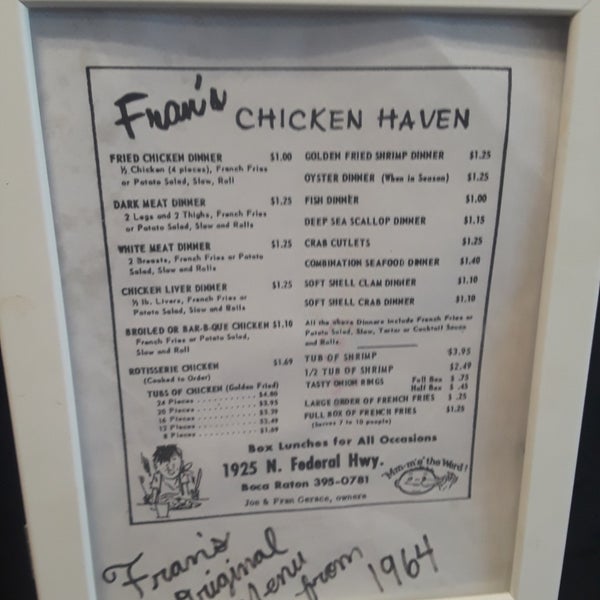 Fran's CHICKEN HAVEN
FRIED CHICKEN DINNER $1.00
½ Chicken (4 pieces), French Fries
or Potato Salad, Slaw, Roll
DARK MEAT DINNER $1.25
2 Legs and 2 Thighs, French Fries
or Potato Salad, Slaw and Rolls
WHITE MEAT DINNER $1.25
2 Breasts, French Fries or Potato
Salad, Slaw and Rolls
CHICKEN LIVER DINNER $1.25
½ lb. Livers, French Fries or
Potato Salad, Slaw and Rolls
BROILED OR BAR-B-QUE CHICKEN $1.10
French Fries or Potato Salad,
Slaw and Roll
ROTISSERIE CHICKEN $1.69
(Cooked to Order)
TUBS OF CHICKEN (Golden Fried)
24 Pieces . . . . . . . . . . $4.80
20 Pieces . . . . . . . . . . $3.95
16 Pieces . . . . . . . . . . $3.29
12 Pieces . . . . . . . . . . $2.49
8 Pieces . . . . . . . . . . $1.69
GOLDEN FRIED SHRIMP DINNER $1.25
OYSTER DINNER (When in Season) $1.25
FISH DINNER $1.00
DEEP SEA SCALLOP DINNER $1.15
CRAB CUTLETS $1.25
COMBINATION SEAFOOD DINNER $1.40
SOFT SHELL CLAM DINNER $1.10
SOFT SHELL CRAB DINNER $1.10
All the above Dinners include French Fries or
Potato Salad, Slaw, Tartar or Cocktail Sauce
and Rolls.
TUB OF SHRIMP $3.95
1/2 TUB OF SHRIMP $2.49
TASTY ONION RINGS Full Box $ .75
Half Box $ .45
LARGE ORDER OF FRENCH FRIES $ .25
FULL BOX OF FRENCH FRIES $1.25
(Serves 7 to 10 people)
Box Lunches for All Occasions
1925 N. Federal Hwy.
Boca Raton 395-0781
Joe & Fran Gerace, owners
"Mm-m'e' the Word!
Fran's
Original
Menu
from 1964